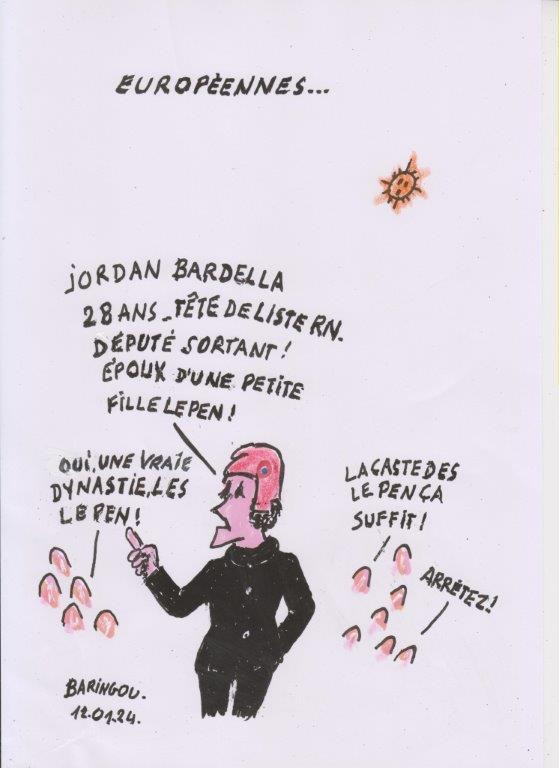 EUROPÈENNES...
JORDAN BARDELLA
28 ANS_TÊTE DE LISTE RN.
DÉPUTÉ SORTANT!
ÉPOUX D'UNE PETITE
FILLE LEPEN!
OUI, UNE VRAIE
DYNASTIE, LES
LE PEN!
LA CASTE DES
LE PEN ÇA
SUFFIT!
ARRÊTEZ!
BARINGOU.
12.01.24.